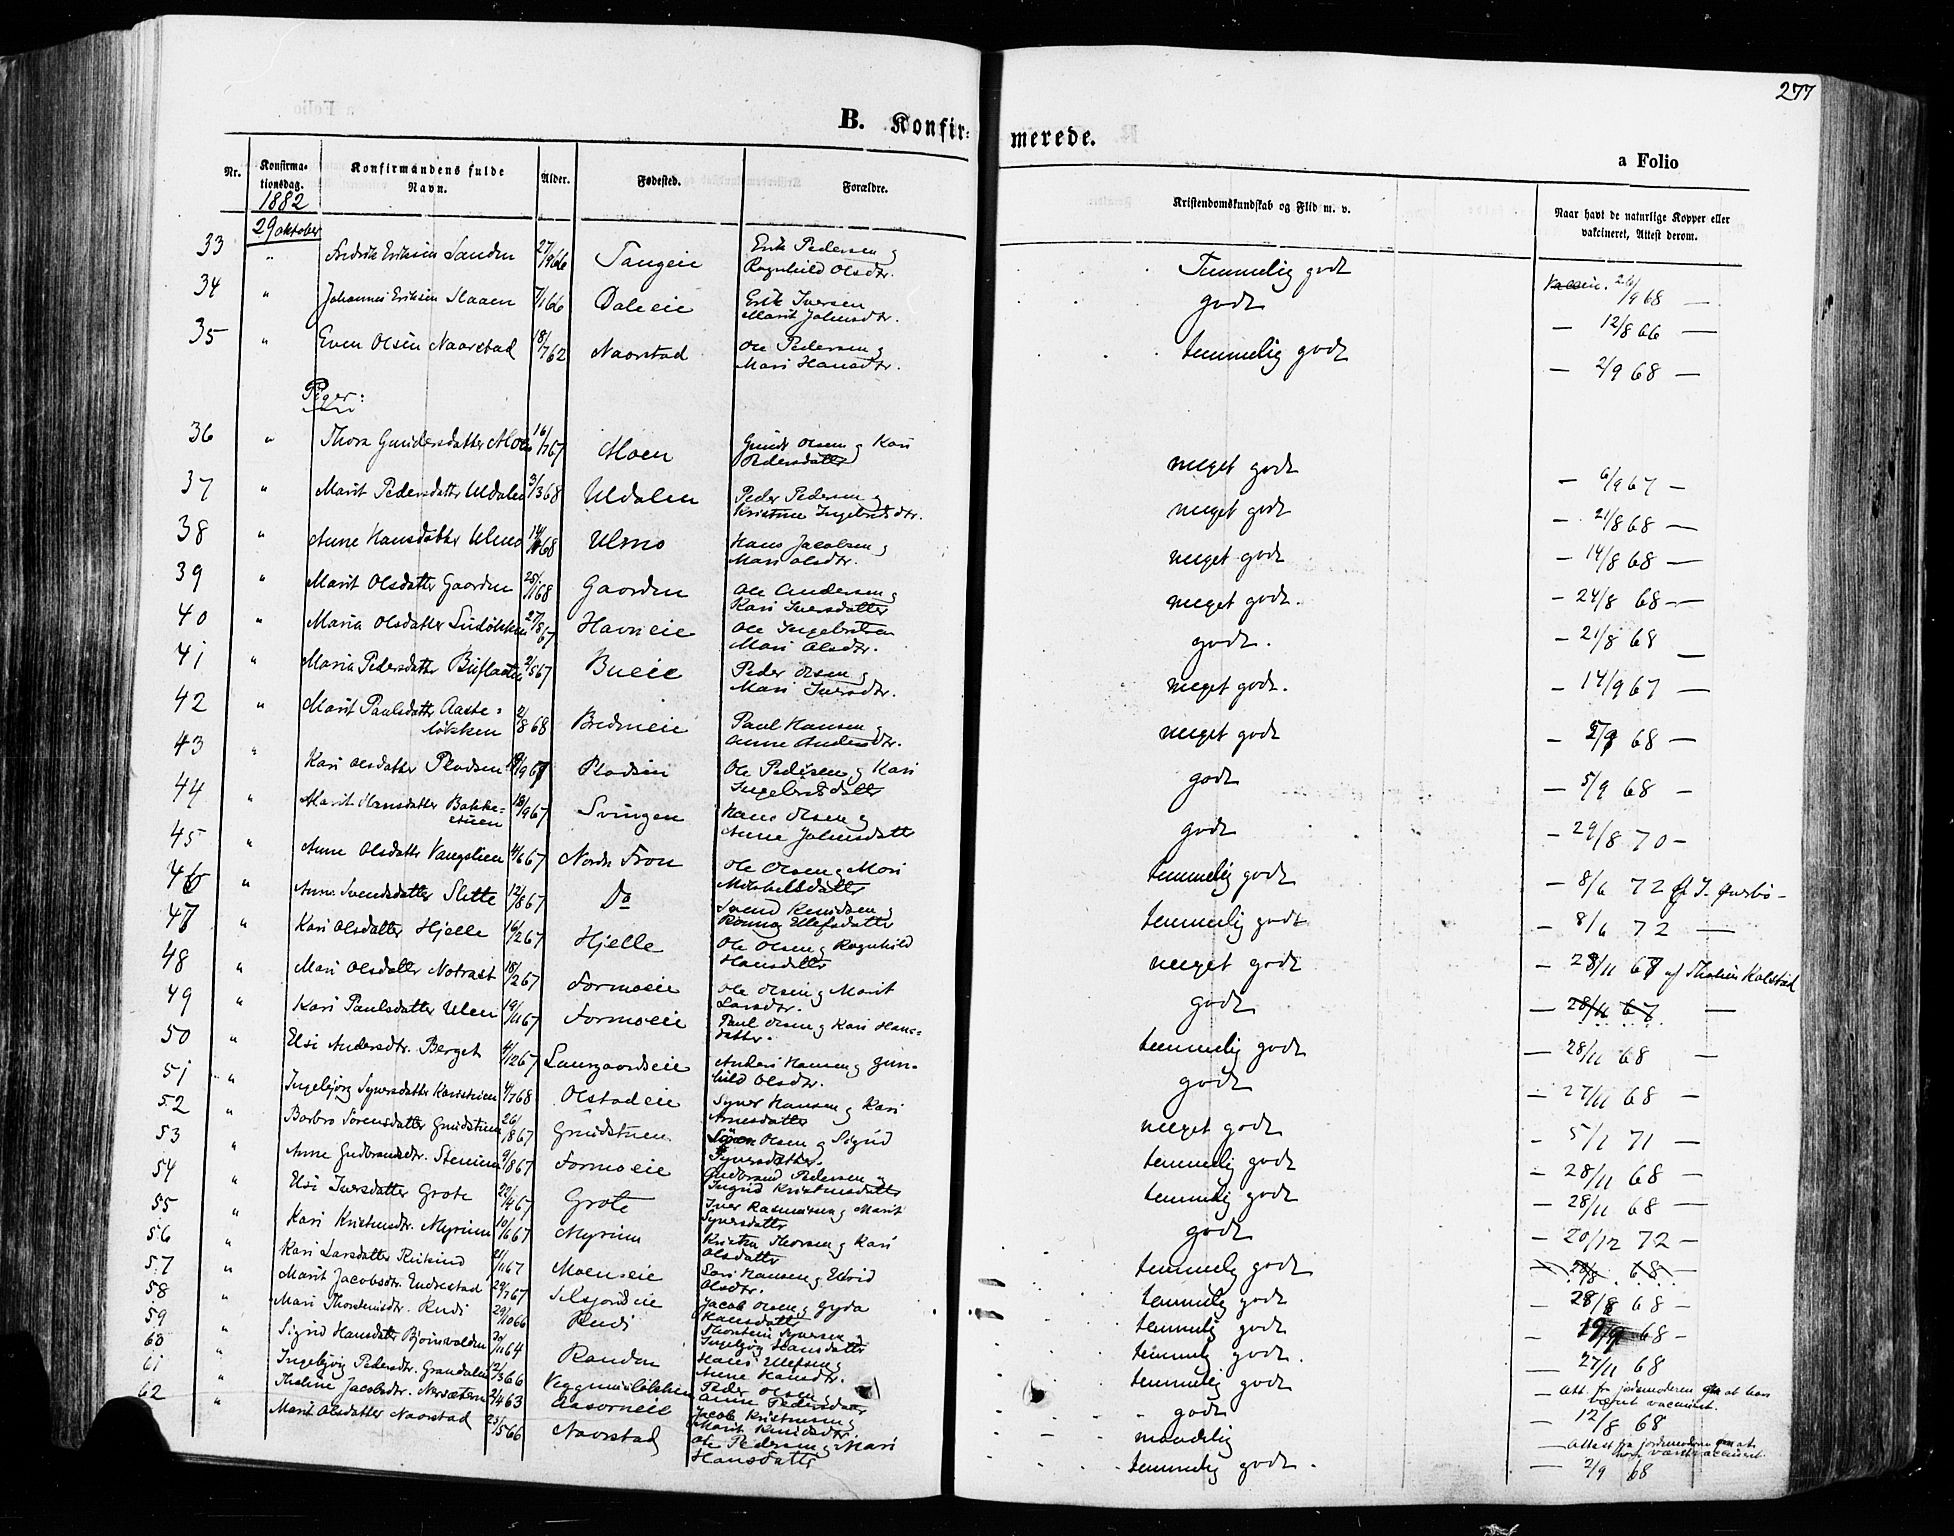 277
B. Konfir= merede.
a Folio
Nr. Konfirma-tionsdag. Konfirmandens fulde Navn. Alder. Fødested. Forældre. Kristendomskundskab og Flid m. v. Naar havt de naturlige Kopper eller vakcineret, Attest derom.
1882
29 oktober
33 " Fredrik Eriksen Sanden 27/9 66 Tangeie Erik Pedersen og Ragnhild Olsdtr. Temmelig godt Vaccin. /9 68 —
34 " Johannes Eriksen Slaaen 7/1 66 Daleeie Erik Iversen Marit Johnsdtr. godt — 12/8 66 —
35 " Even Olsen Naorstad 18/7 62 Naorstad Ole Pedersen og Mari Hansdtr. temmelig godt — 2/9 68 —
Piger:
36 " Thora Gundersdatter Moen 16/7 67 Moen Olsen og Kari Pedersdatter meget godt — 6/9 67 —
37 " Marit Pedersdatter Uldalen 3/3 68 Uldalen Peder Pedersen og Kristine Ingebretsdtr. meget godt — 21/8 68 —
38 " Anne Hansdatter Ulmo 68 Ulmo Hans Jacobsen og Mari Olsdtr. meget godt — 14/8 68 —
39 " Marit Olsdatter Gaarden 25/1 68 Gaarden Ole Andersen og Kari Iversdatter meget godt. — 24/8 68 —
40 " Maria Olsdatter 27/8 67 Havneie Ole Ingebretsen Mari Olsdtr. godt. — 21/8 68 —
41 " Maria Pedersdatter 2/5 67 Bueie Peder Olsen og Mari Iversdtr. meget godt. — 14/9 67 —
42 " Marit Paulsdatter Aaste=løkken 2/8 68 Bredneie Paul Hansen og Anne Andersdtr. meget godt — 68 —
43 " Kari Olsdatter Pladsen /9 67 Pladsen Ole Pedersen og Kari Ingebretsdatter godt — 5/9 68 —
44 " Marit Hansdatter Bakke=stuen 18/9 67 Svingen Hans Olsen og Anne Johnsdatt godt — 29/8 70 —
45 " Anne Olsdatter Vangstuen 4/6 67 Nordre Fron Ole Olsen og Mari temmelig godt — 8/6 72
46 " Anne Svendsdatter Slette 12/8 67 Do Svend Knudsen og Ellefsdatter temmelig godt — 8/6 72 —
47 " Kari Olsdatter Hjelle 16/2 67 Hjelle Ole Olsen og Ragnhild Hansdatter meget godt — 28/11 67 af Kalstad
48 " Mari Olsdatter 18/2 67 Formoeie Ole Olsen og Marit Larsdtr. godt — 28/11 67 —
49 " Kari Paulsdatter Ulen 19/11 67 Formoeie Paul Olsen og Kari Hans=datter. temmelig godt — 28/11 68 —
50 " Eli Andersdtr. Berget 4/12 67 Laurgaardseie Anders Hansen og Gun=hild Olsdtr. godt — 27/11 68 —
51 " Ingebjørg Syversdatter 4/7 68 Olstadeie Syver Hansen og Kari Arnesdatter meget godt — 5/1 71 —
52 " Barbro Sørensdatter Grudstuen 26/8 67 Grudstuen Søren Olsen og Sigrid Syversdatter. temmelig godt — 28/11 68 —
53 " Anne Gudbrandsdtr. 9/8 67 Formoeie Gudbrand Pedersen og Ingrid Kristensdatter temmelig godt — 28/11 68 —
54 " Eli Iversdatter Grote 22/4 67 Grote Iver Rasmussen og Marit Syversdatter godt — 20/12 72 —
55 " Kari Kristensdtr. Myrum 10/6 67 Myrum Kristen Thorsen og Kari Olsdatter temmelig godt 68
56 " Kari Larsdatter 21/11 67 Moenseie Lars Hansen og Olsdtr. temmelig godt — 28/8 68 —
57 " Marit Jacobsdtr. Endrestad 29/7 67 Selsjordeie Jacob Olsen og Gyda Hansdatter temmelig godt — 68 —
58 " Mari Thorsteinsdtr. Rudi 29/10 66 Rudi Thorstein Syversen og Ingebjørg Hansdatter temmelig godt. — 27/11 68
59 " Sigrid Hansdatter Bjørnvolden /11 64 Randen Hans Ellefsen og Anne Hansdtr. temmelig godt — Att. fr. jordmoderen at han vaccineret.
60 " Ingebjørg Pedersdtr. Grandalen 12/3 66 Peder Olsen og Anne Pedersdatter godt — 12/8 68
61 " Thorine Jacobsdtr. 2/4 63 Jacob Kristensen og Marit Knudsdtr. maadelig — Attest fra jordmoderen at vaccineret.
62 " Marit Olsdatter Naorstad 25/5 66 Naorstad Ole Pedersen og Mari Hansdatter temmelig godt. — 2/9 68